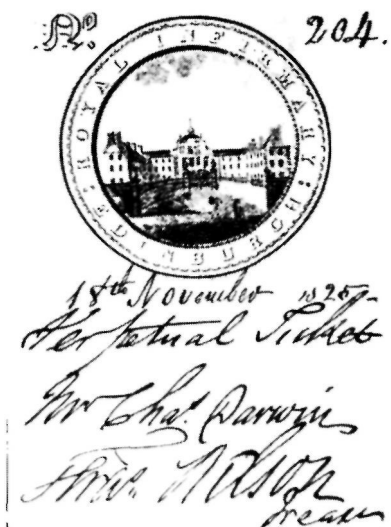 No. 204.
ROYAL INFIRMARY: EDINBURGH:
18th November 1825
Perpetual Ticket
Mr Chas. Darwin
Wilson
Treasr